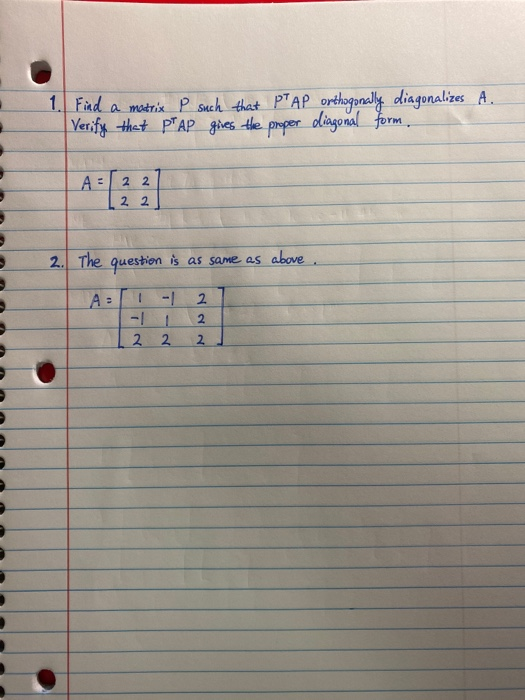 1. Find a matrix P such that PᵀAP orthogonally diagonalizes A.
Verify that PᵀAP gives the proper diagonal form.
A = [ 2 2
2 2 ]
2. The question is as same as above.
A = [ 1 -1 2
-1 1 2
2 2 2 ]